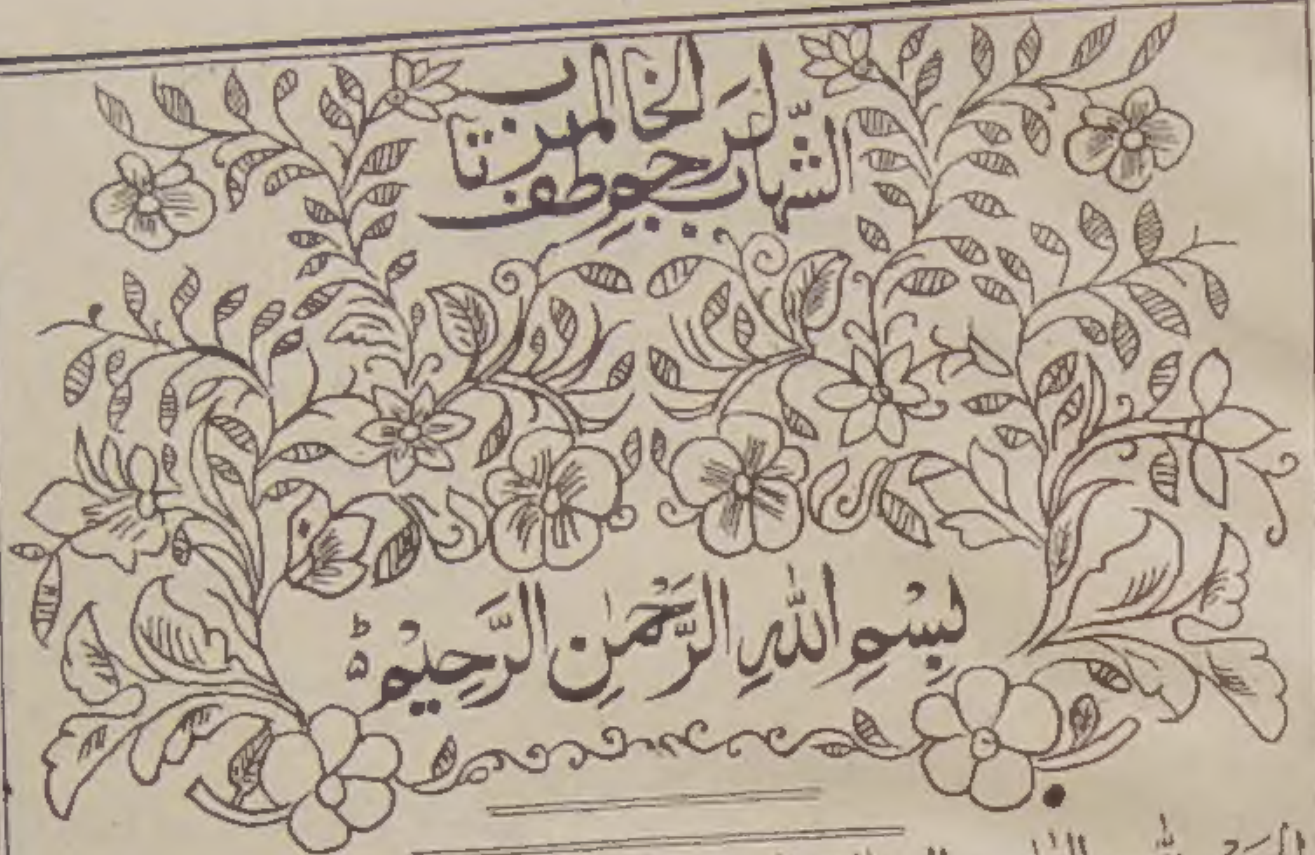 الشّهاب لرَجم الخاطف المرتاب
بِسْمِ اللّٰهِ الرَّحْمٰنِ الرَّحِيْمِ ط